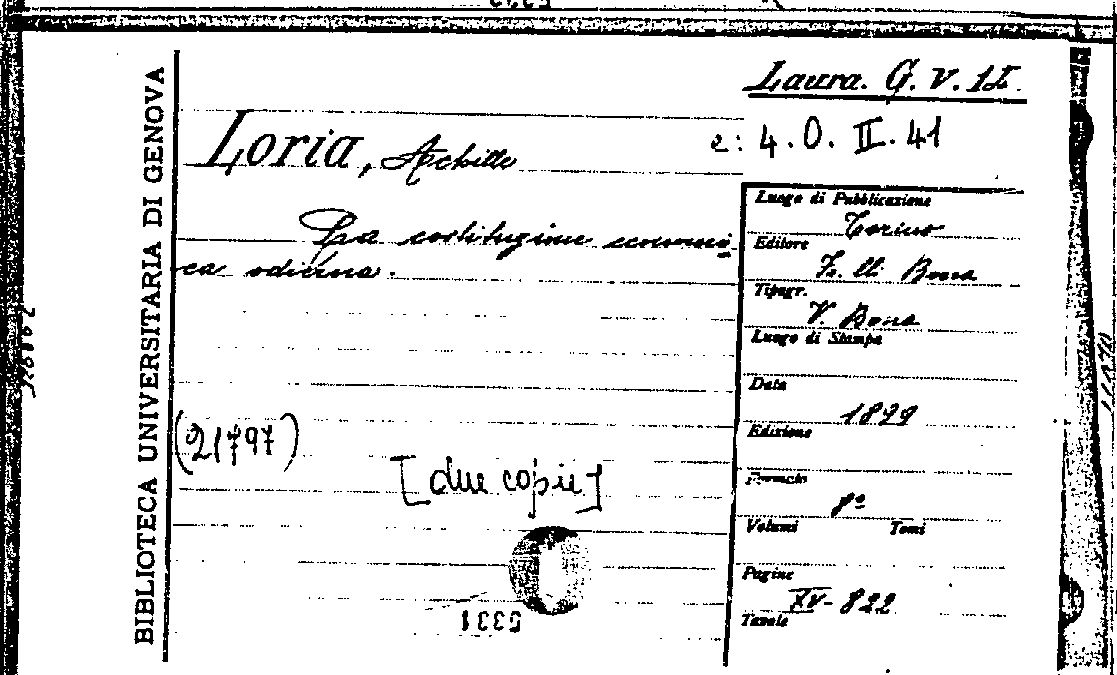 BIBLIOTECA UNIVERSITARIA DI GENOVA
Laura. G. V. 12
e: 4. O. II. 41
Loria, Achille
La costituzione economi
ca odierna.
(21797)
[due copie]
Luogo di Pubblicazione
Torino
Editore
F.lli Bocca
Tipogr.
V. Bona
Luogo di Stampa
Data
1899
Edizione
Formato
8º
Volumi Tomi
Pagine
XV-822
Tavole